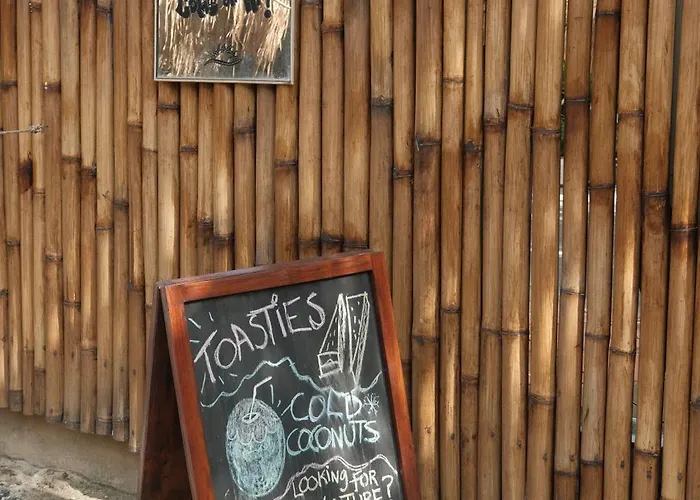 TOASTIES
COLD
COCONUTS
LOOKING FOR